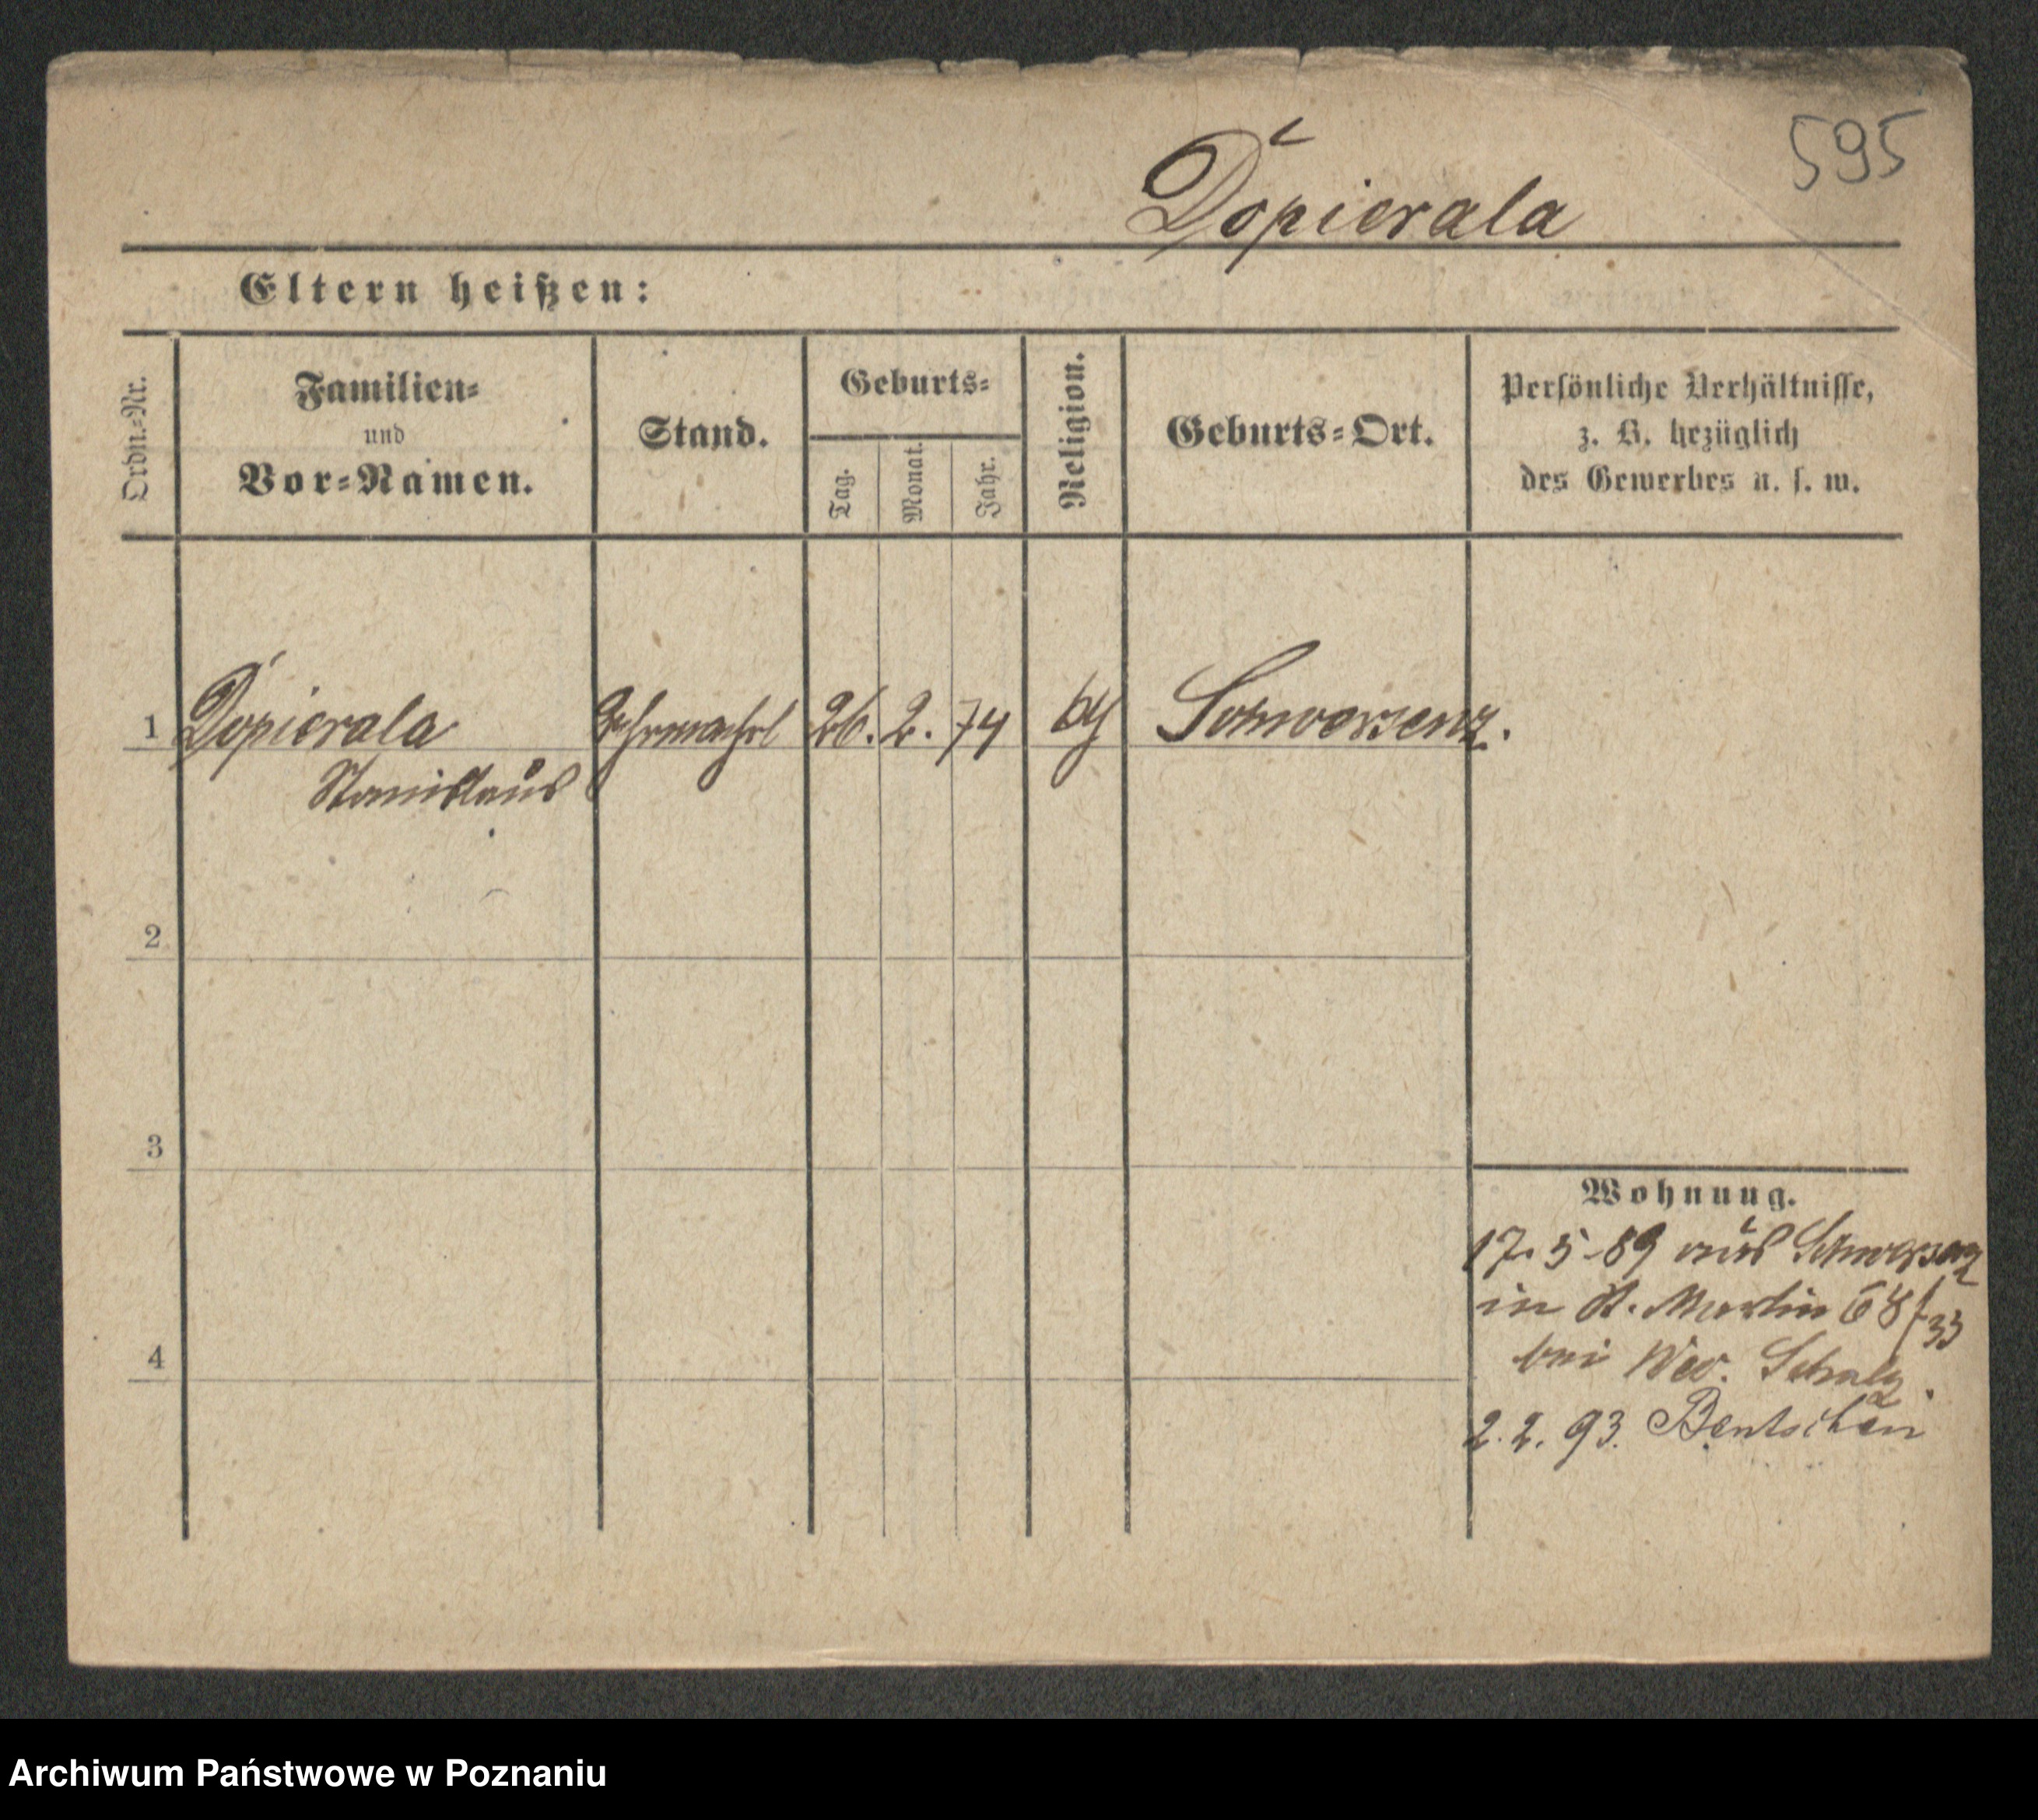 595
Dopierala
Eltern heißen:
Ordn.-Nr.
Familien-
und
Vor-Namen.
Stand.
Geburts-
Tag.
Monat.
Jahr.
Religion.
Geburts-Ort.
Persönliche Verhältnisse,
z. B. bezüglich
des Gewerbes u. s. w.
1 Dopierala 26. 2. 74 Schwersenz.
Stanislaus
2
3
4
Wohnung.
17. 5. 89 aus Schwersenz
in St. Martin 68/33
bei Wwe.
2. 2. 93. Bentschen
Archiwum Państwowe w Poznaniu